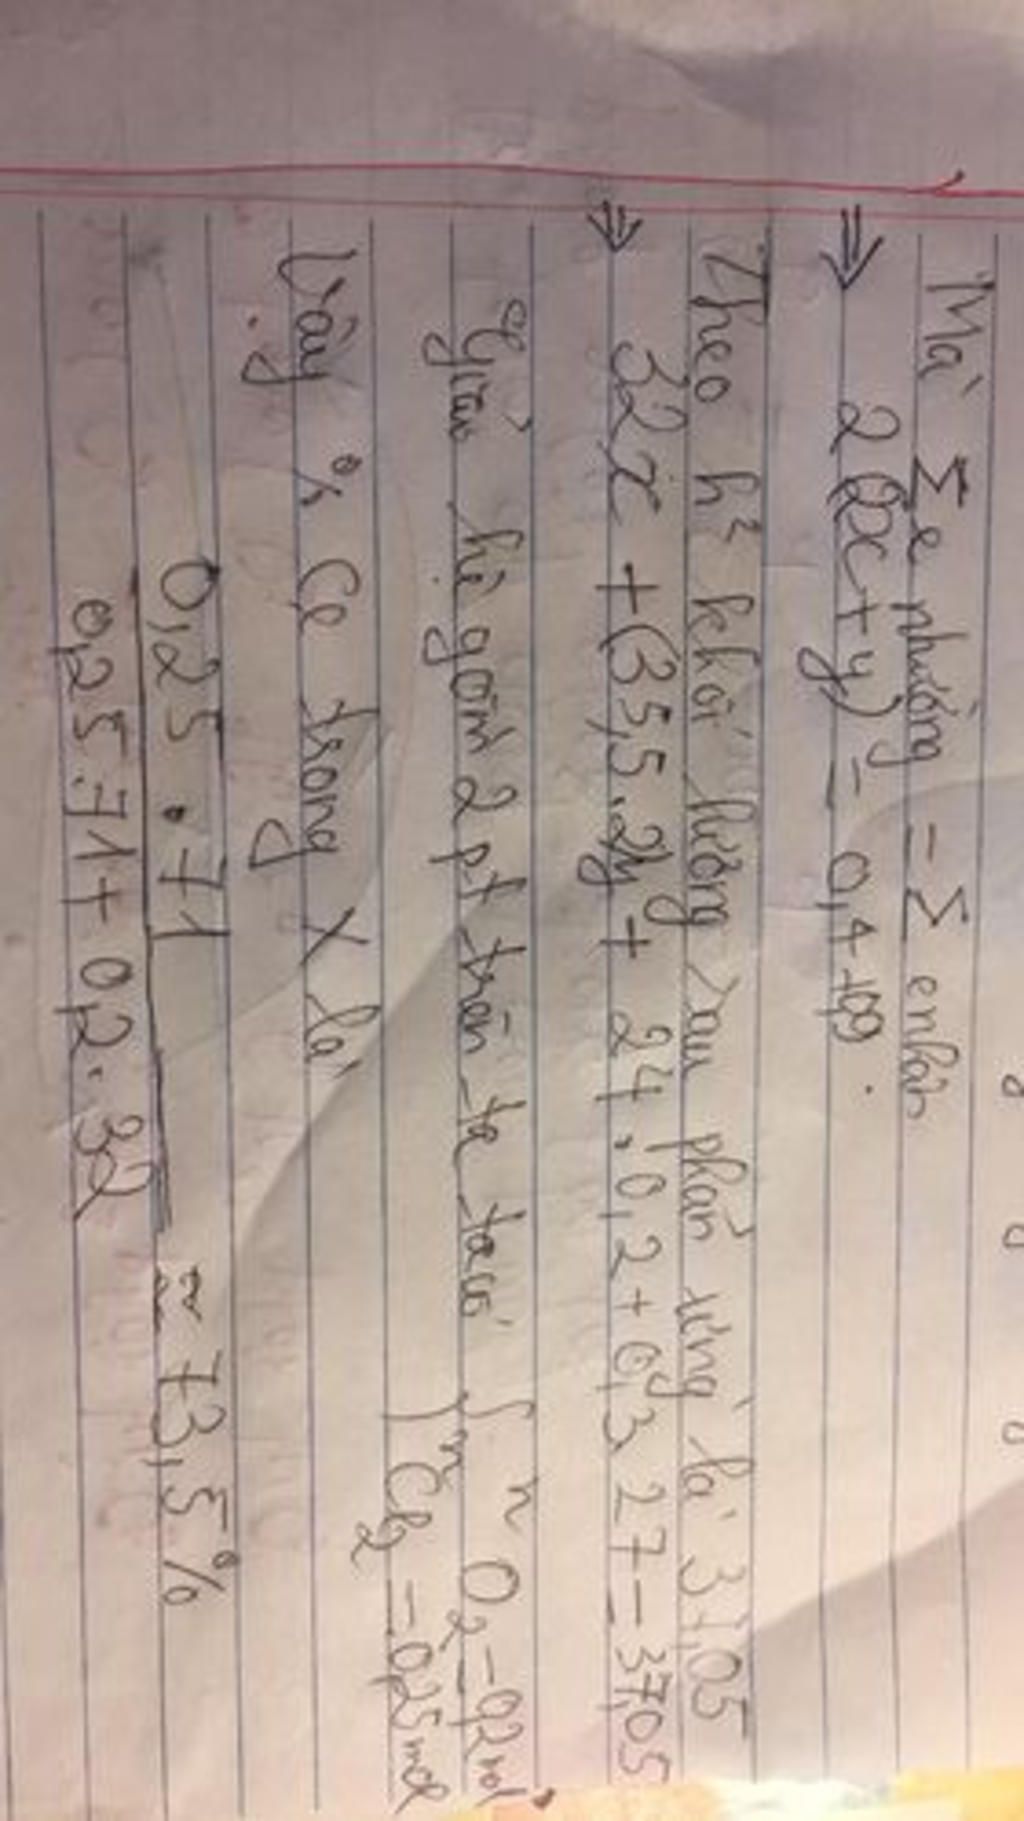 Mà Σe nhường = Σ enhận
⇒ 2(2x+y) = 0,4+0,9.
Theo h² khối lượng sau phản ứng là 37,05
⇒ 32x + (35,5.2)y + 24.0,2+0,3 27=37,05
Giải hệ gồm 2 pt trên ta có { n O₂=0,2mol
n Cl₂ = 0,25mol
Vậy % Cl trong X là
0,25 . 71
0,25.71+0,2.32
≈ 73,5%